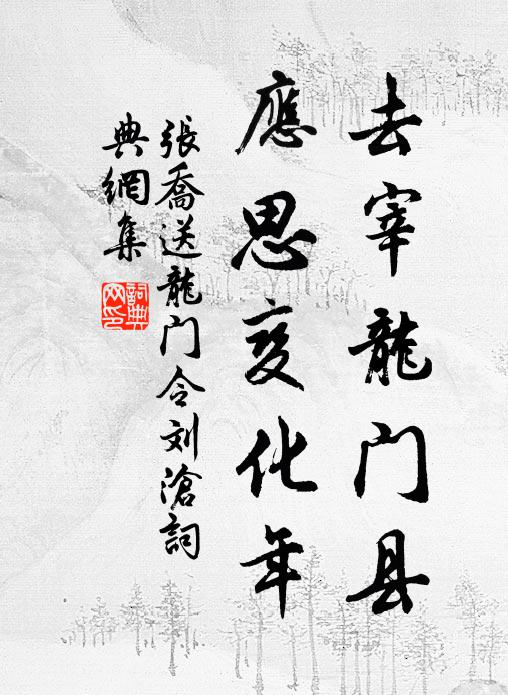 去宰龍门县
應思变化年
張喬送龍门令刘滄詞
典網集
詞典网印